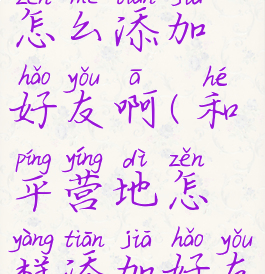 zěn me tiān jiā
怎么添加
hǎo yǒu ā hé
好友啊(和
píng yíng dì zěn
平营地怎
yàng tiān jiā hǎo yǒu
样添加好友